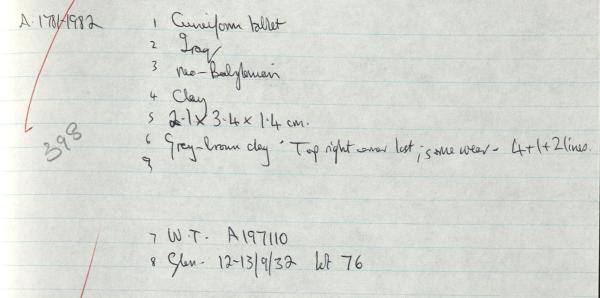 A.1781-1982
1 Cuneiform tablet
2 Iraq
3 Neo-Babylonian
4 Clay
5 2.1 x 3.4 x 1.4 cm.
6 Grey-brown clay. Top right corner lost; some wear - 4+1+2 lines.
9
398
7 W.T. A197110
8 Glen. 12-13/9/32 lot 76